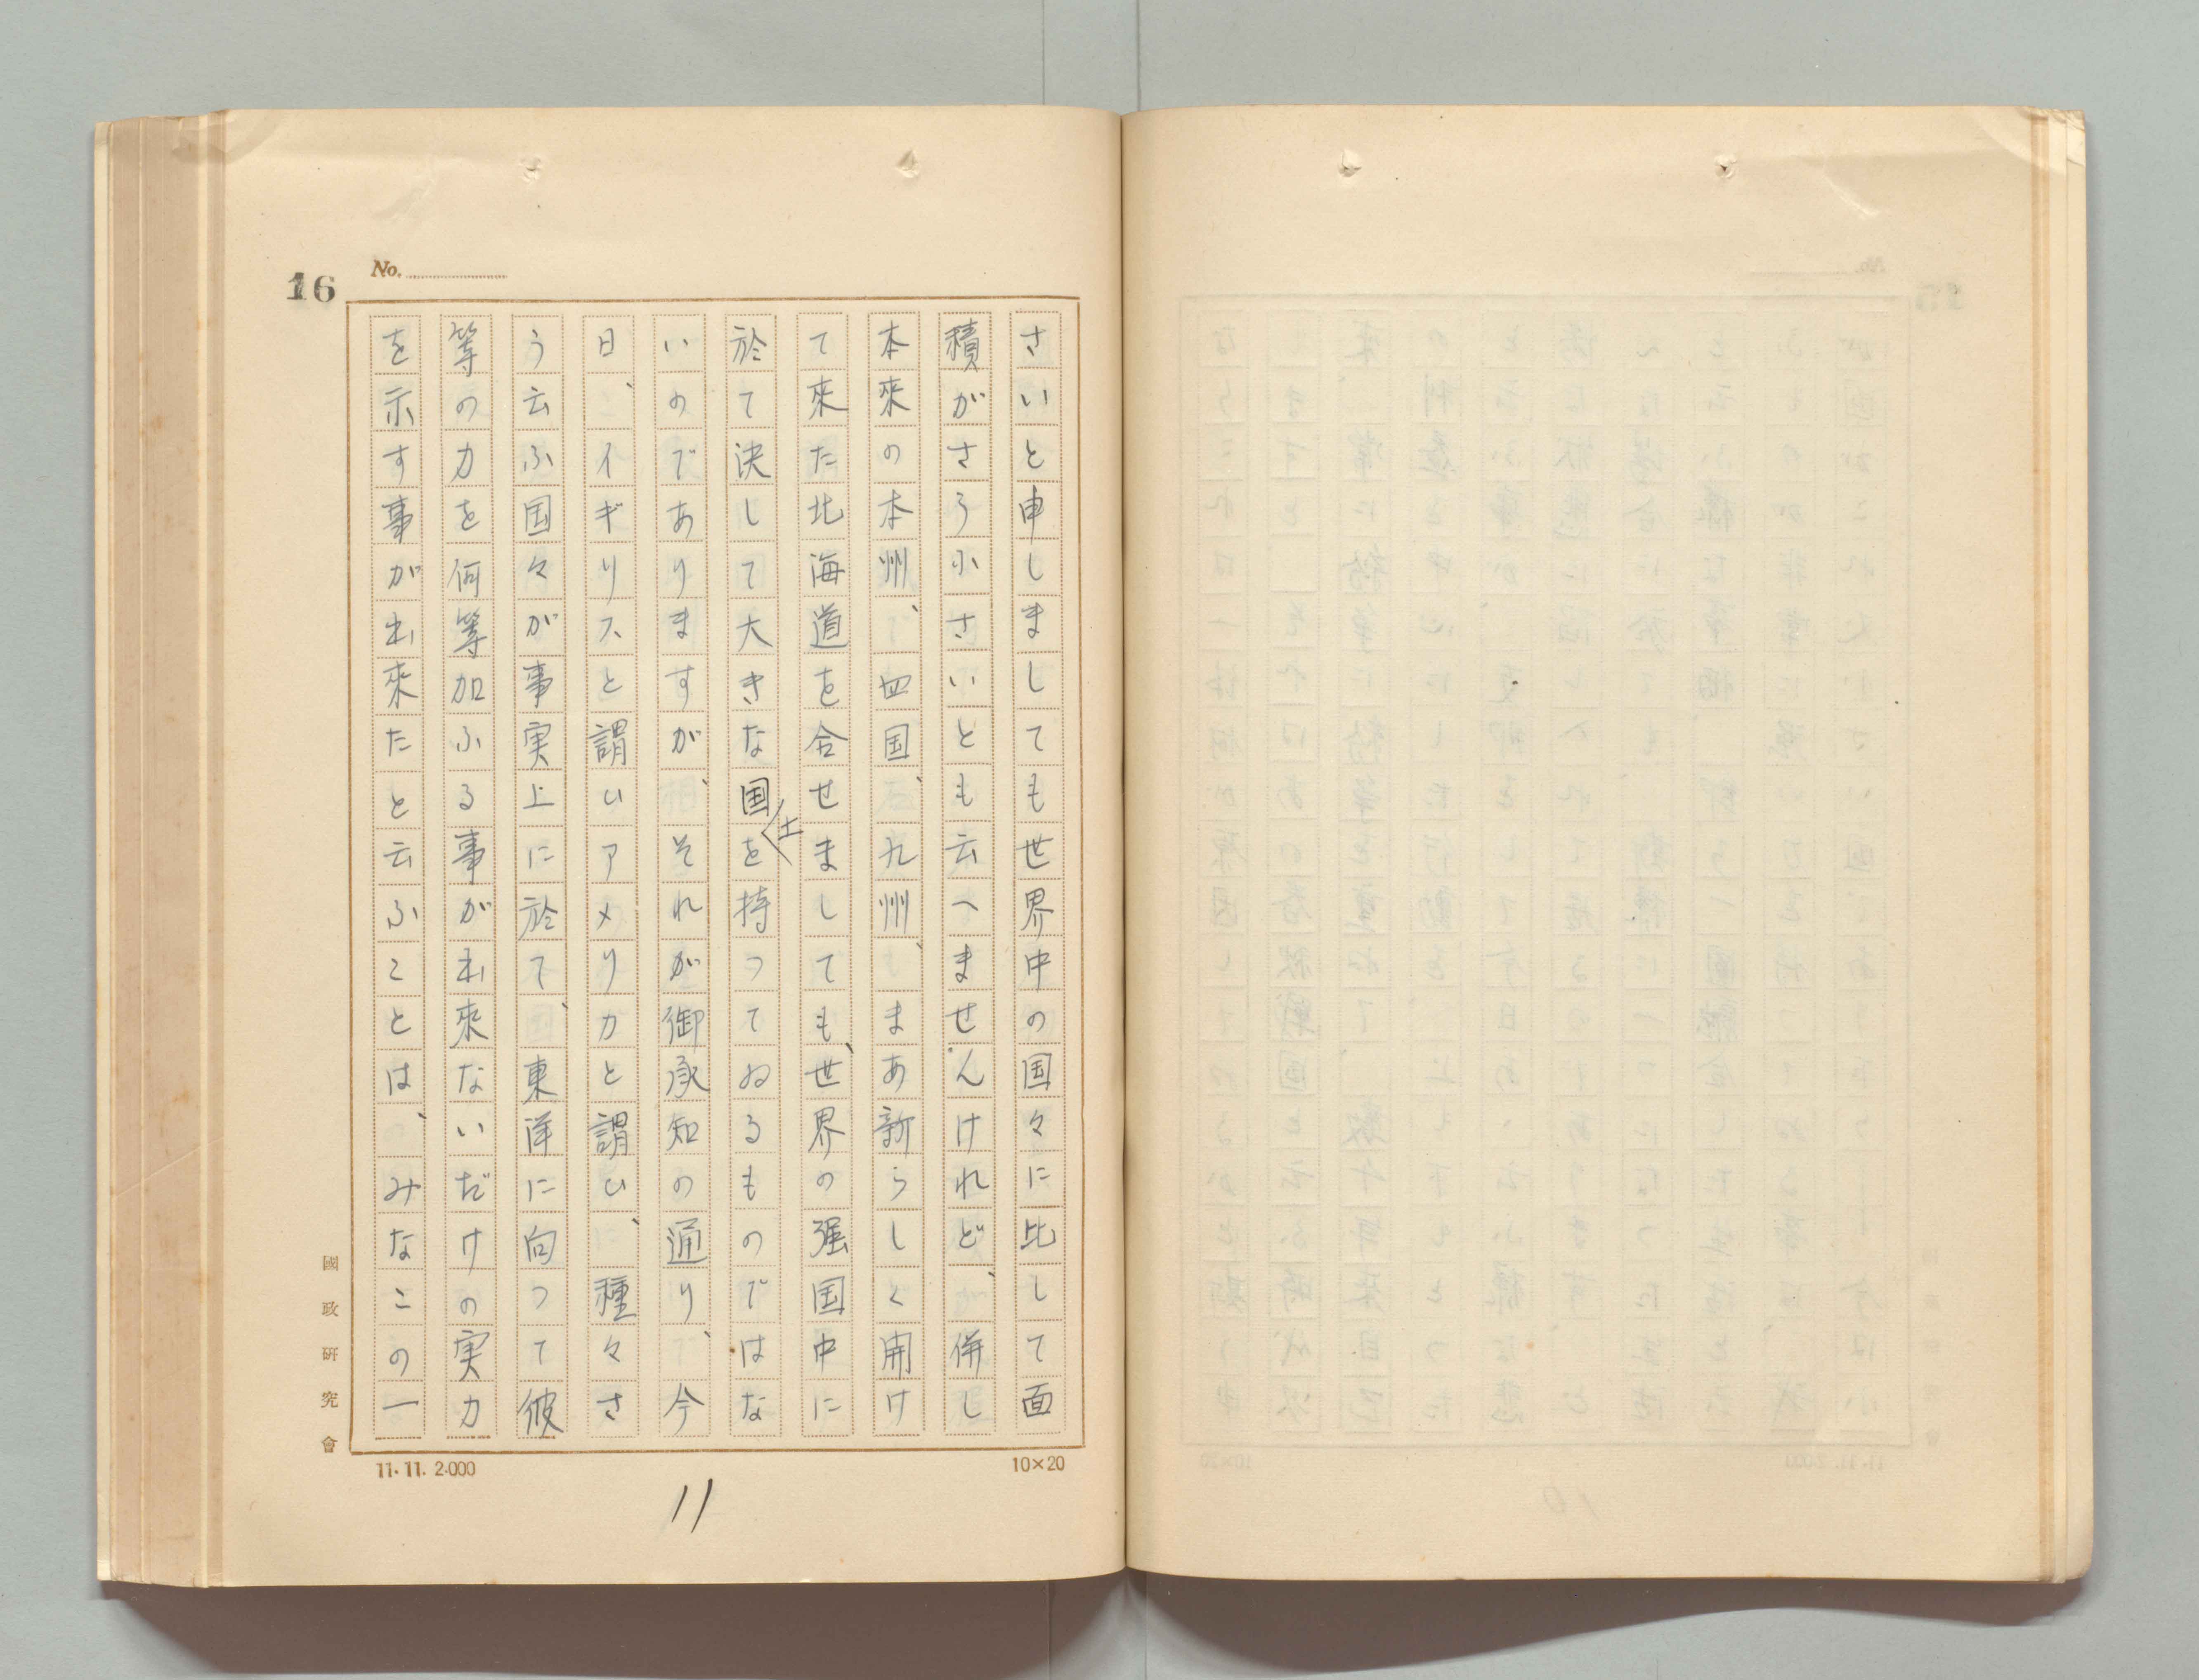 16
No.
さいと申しましても世界中の国々に比して面
積がさう小さいとも云へませんけれど、併し
本來の本州、四国、九州、まあ新らしく開け
て來た北海道を合せましても、世界の強国中に
於て決して大きな国土を持つてゐるものではな
いのでありますが、それが御承知の通り、今
日、イギリスと謂ひアメリカと謂ひ、種々さ
う云ふ国々が事実上に於て、東洋に向つて彼
等の力を何等加ふる事が出來ないだけの実力
を示す事が出來たと云ふことは、みなこの一
國政研究會
11.11.2.000
10×20
11